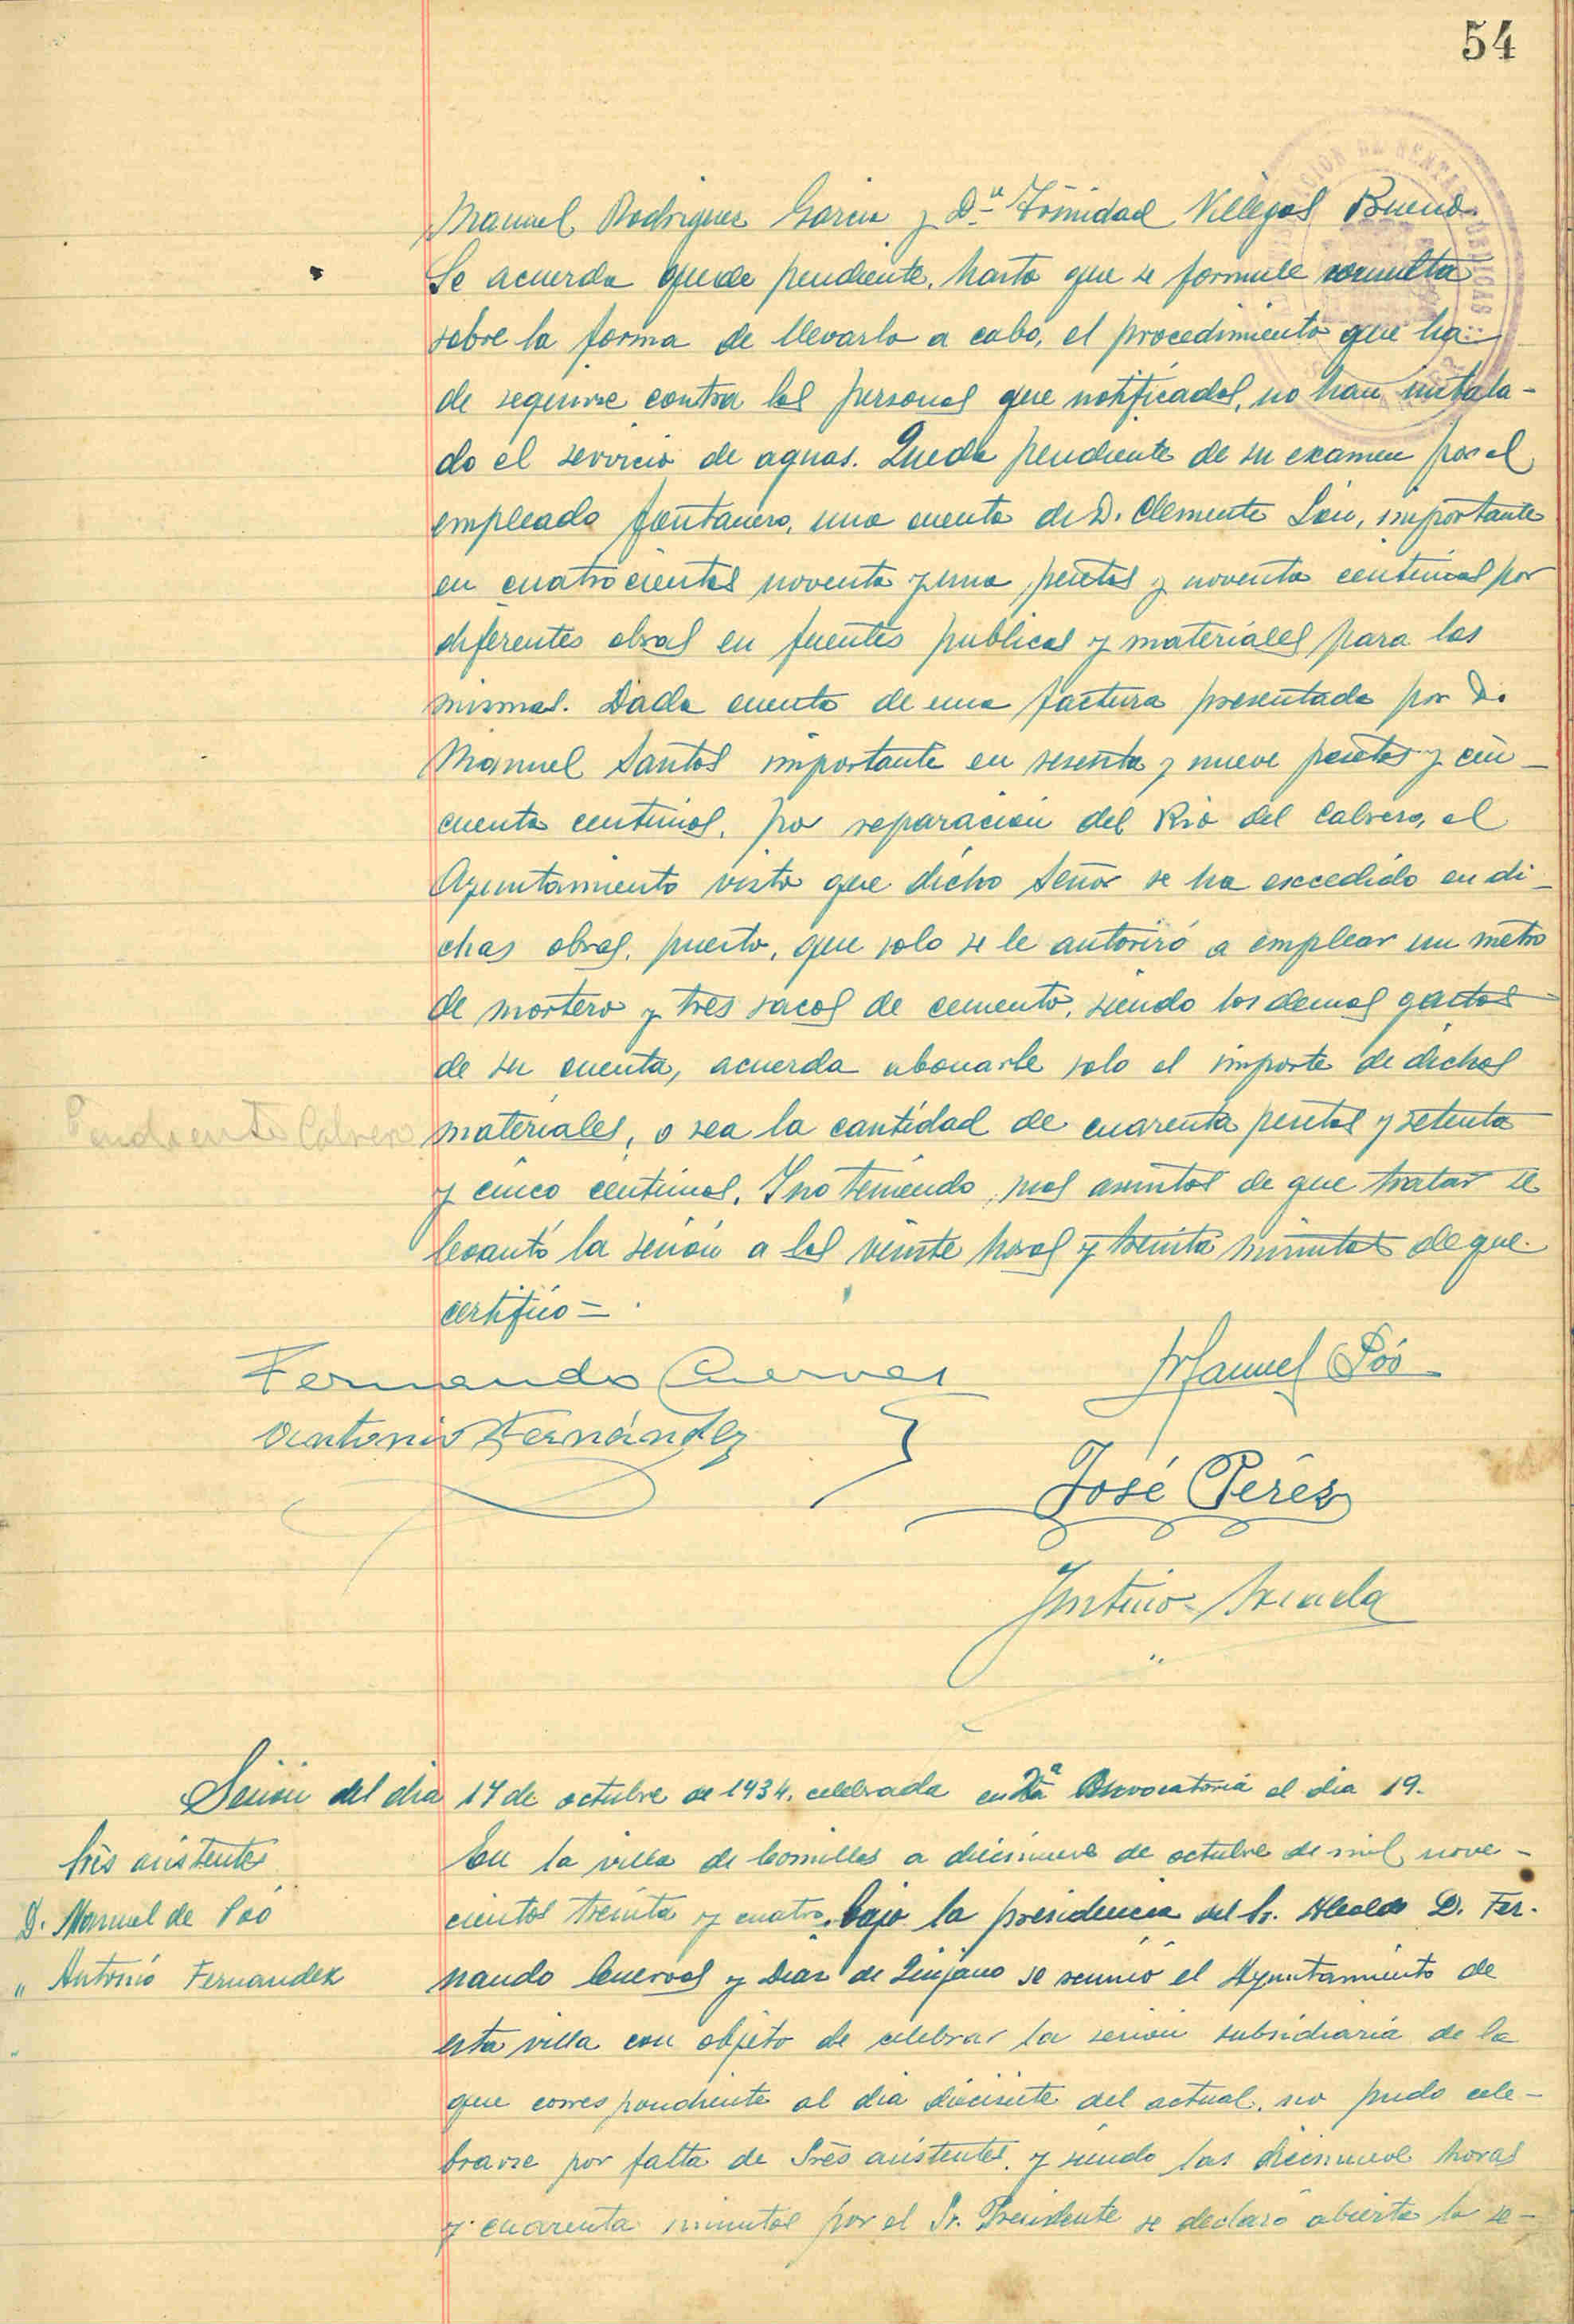 54
ADMINISTRACION DE RENTAS PUBLICAS
Manuel Rodriguez Garcia y D.ª Trinidad Villegas Bueno.
Se acuerda quede pendiente, hasta que se formule consulta
sobre la forma de llevarlo a cabo, el procedimiento que ha
de seguirse contra las personas que notificadas, no han instala-
do el servicio de aguas. Queda pendiente de su examen por el
empleado fontanero, una cuenta de D. Clemente Láu, importante
en cuatrocientas noventa y una pesetas y noventa centimos por
diferentes obras en fuentes publicas y materiales para las
mismas. Dada cuenta de una factura presentada por D.
Manuel Santos importante en sesenta y nueve pesetas y cin-
cuenta centimos, por reparación del Rio del Cabrero, el
Ayuntamiento visto que dicho Señor se ha escedido en di-
chas obras, puesto, que solo se le autorizó a emplear un metro
de mortero y tres sacos de cemento, siendo los demas gastos
de su cuenta, acuerda abonarle solo el importe de dichos
Pendiente Cabrero
materiales, o sea la cantidad de cuarenta pesetas y setenta
y cinco centimos. Y no teniendo mas asuntos de que tratar se
levantó la sesión a las veinte horas y treinta minutos de que
certifico=.
Fernando Cuervas
Manuel Póo
Antonio Fernández
José Pérez
Sesión del dia 17 de octubre de 1934, celebrada en 2ª Convocatoria el dia 19.
Sres asistentes
En la villa de Comillas a diecinueve de octubre de mil nove-
D. Manuel de Póo
cientos treinta y cuatro, bajo la presidencia del Sr. Alcalde D. Fer-
" Antonio Fernandez
nando Cuervas y Diaz de Quijano se reunió el Ayuntamiento de
esta villa con objeto de celebrar la sesión subsidiaria de la
que correspondiente al dia diecisiete del actual, no pudo cele-
brarse por falta de Sres asistentes, y siendo las diecinueve horas
y cuarenta minutos por el Sr. Presidente se declaró abierta la se-